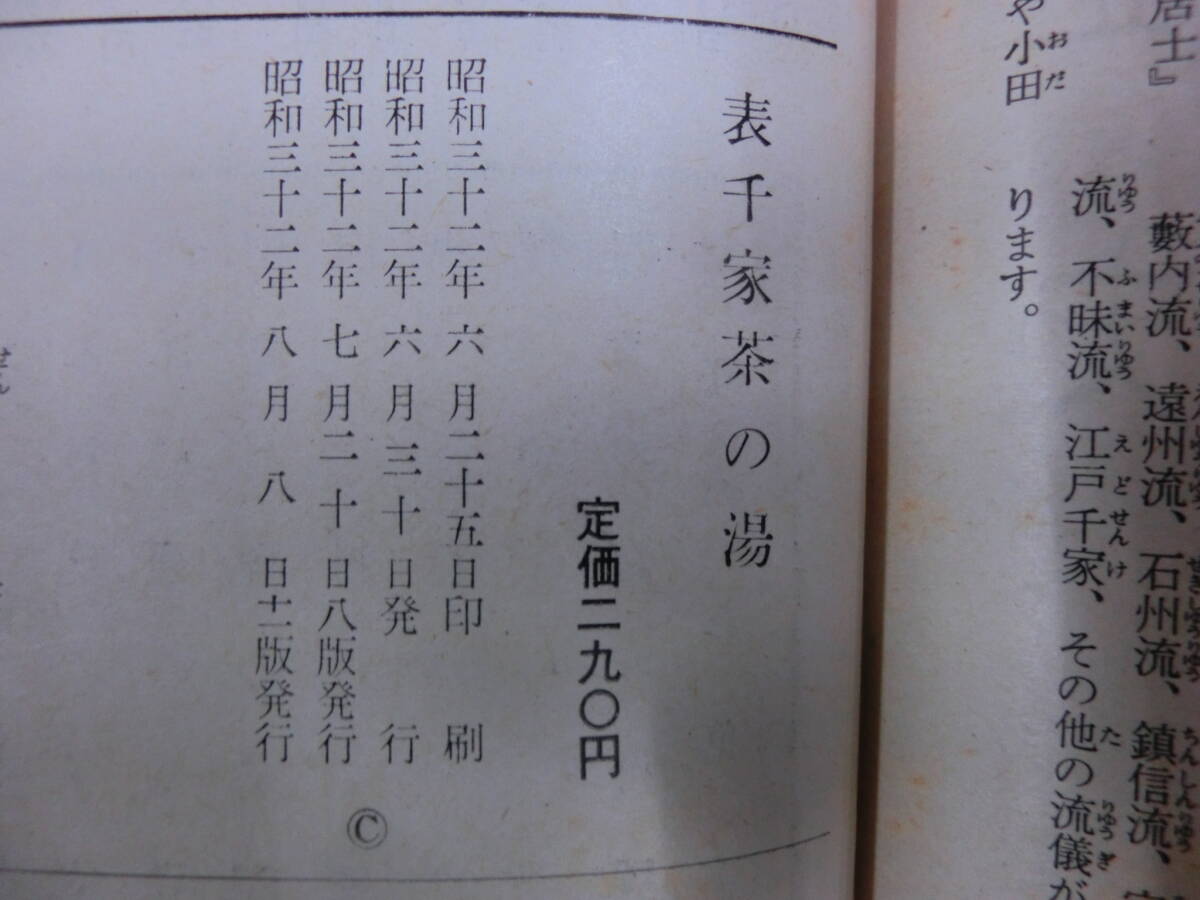 居士』
や小田
藪内流、遠州流、石州流、鎮信流、
流、不昧流、江戸千家、その他の流儀が
ります。
表千家茶の湯
定価二九〇円
昭和三十二年六月二十五日印刷
昭和三十二年六月三十日発行
昭和三十二年七月二十日八版発行
昭和三十二年八月八日十二版発行
©